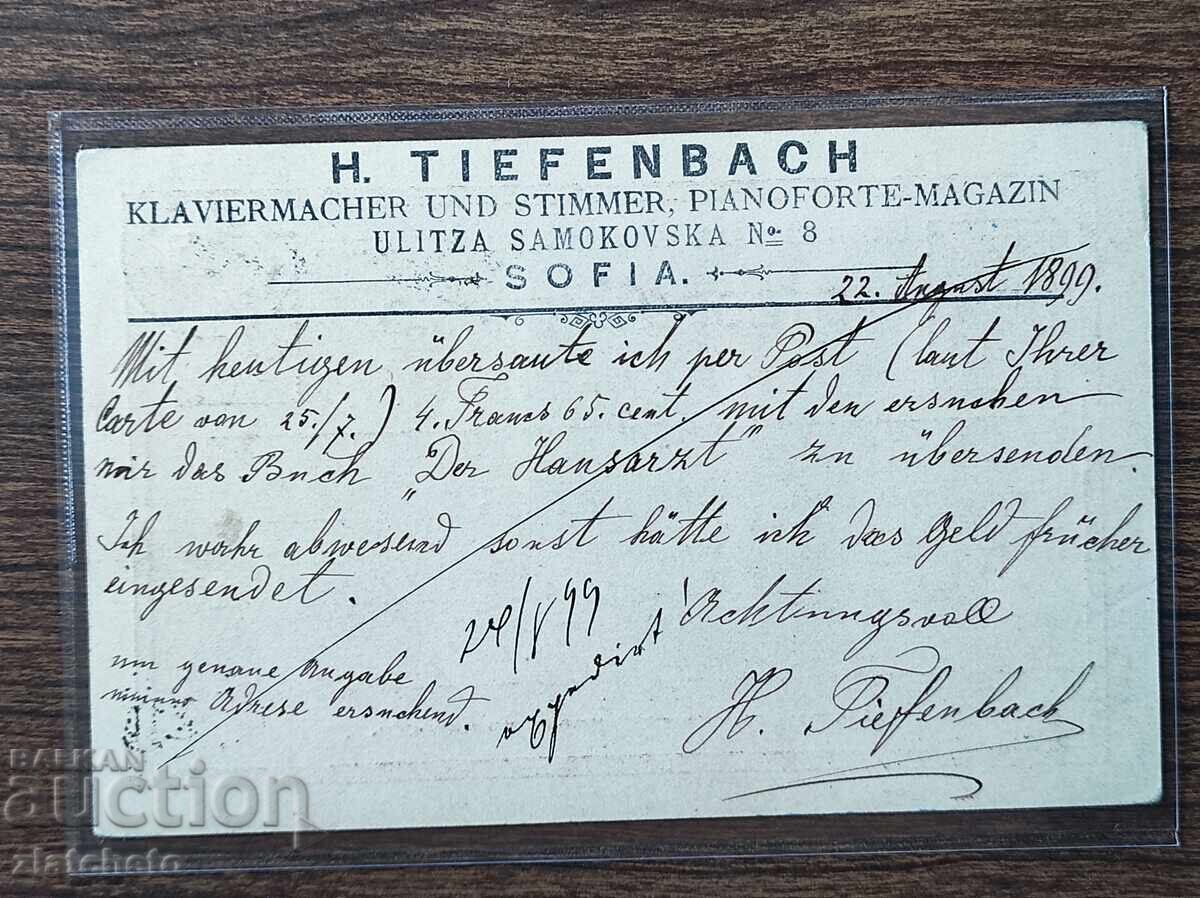 H. TIEFENBACH
KLAVIERMACHER UND STIMMER, PIANOFORTE-MAGAZIN
ULITZA SAMOKOVSKA No. 8
SOFIA.
22. August 1899.
Mit heutigen übersante ich per Post (laut Ihrer
Carte von 25./7.) 4. Francs 65. cent. mit den ersuchen
mir das Buch „Der Hausarzt" zu übersenden.
Ich wahr abwesend sonst hätte ich das Geld frücher
eingesendet.
Achtungsvoll
H. Tiefenbach
um genaue Angabe
meiner Adrese ersuchend.
24/8 99
expedirt
BALKAN
auction
zlatcheto